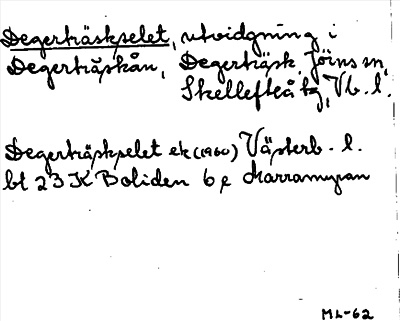 Degerträskselet, utvidgning i
Degerträskån, Degerträsk, Jörns sn,
Skellefteå tg, Vb. l.
Degerträskselet ek (1960) Västerb. l.
bl 23 K Boliden 6 e Marramyran
ML-62